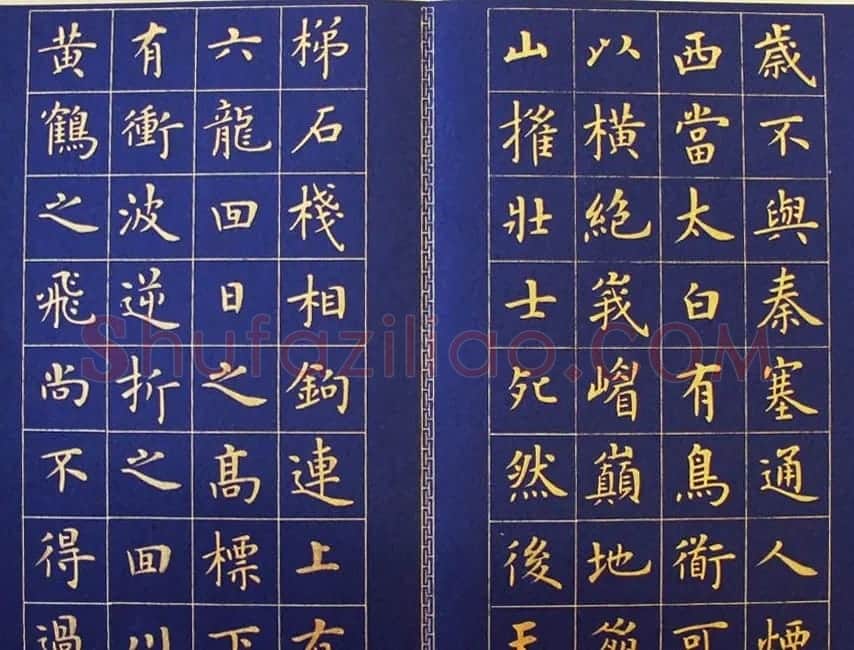 歲不與秦塞通人煙
西當太白有鳥衜可
以橫絶峩嵋巔地崩
山摧壯士死然後天
梯石棧相鉤連上有
六龍回日之髙標下
有衝波逆折之回川
黃鶴之飛尚不得過
Shufaziliao.COM